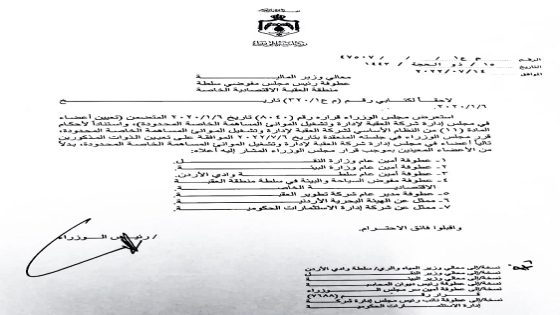 الرقم م ١٤ / / / ٤٧٥٠٧
التاريخ ١٥ / ذو الحجة / ١٤٤٣
٢٠٢٢/٠٧/١٤
معالي وزير المالية
عطوفة رئيس مجلس مفوضي سلطة
منطقة العقبة الاقتصادية الخاصة
لاحقاً لكتابي رقم (م ع١/ ٣٢٠) تاريخ
٢٠٢٠/١/٦
استعرض مجلس الوزراء قراره رقم (٨٠٤٠) تاريخ ٢٠٢٠/١/٦ المتضمن (تعيين أعضاء
في مجلس إدارة شركة العقبة لإدارة وتشغيل الموانئ المساهمة الخاصة المحدودة)، واستناداً لأحكام
المادة (١١) من النظام الأساسي لشركة العقبة لإدارة وتشغيل الموانئ المساهمة الخاصة المحدودة،
قرر مجلس الوزراء في جلسته المنعقدة بتاريخ ٢٠٢٢/٧/٦ الموافقة على تعيين الذوات المذكورين
تالياً أعضاء في مجلس إدارة شركة العقبة لإدارة وتشغيل الموانئ المساهمة الخاصة المحدودة، بدلاً
من الأعضاء المعينين بموجب قرار مجلس الوزراء المشار إليه أعلاه:
١- عطوفة أمين عام وزارة النقل.
٢- عطوفة أمين عام وزارة البيئة
٣- عطوفة أمين عام سلطة وادي الأردن.
٤- عطوفة مفوض السياحة والبيئة في سلطة منطقة العقبة
الاقتصادية الخاصة
٥- عطوفة مدير عام شركة تطوير العقبة
٦- ممثل عن الهيئة البحرية الأردنية
٧- ممثل عن شركة إدارة الاستثمارات الحكومية
واقبلوا فائق الاحترام،
/ رئيس الوزراء
نسخة/إلى معالي وزير المياه والري/ سلطة وادي الأردن
نسخة/إلى معالي وزير النقل
نسخة/إلى معالي وزير البيئة
نسخة/إلى عطوفة رئيس ديوان المحاسبة
نسخة/إلى عطوفة أمين سر مجلس الوزراء
قرار رقم (٧٦٨٨)
نسخة/إلى عطوفة نائب رئيس مجلس إدارة شركة
إدارة الاستثمارات الحكومية